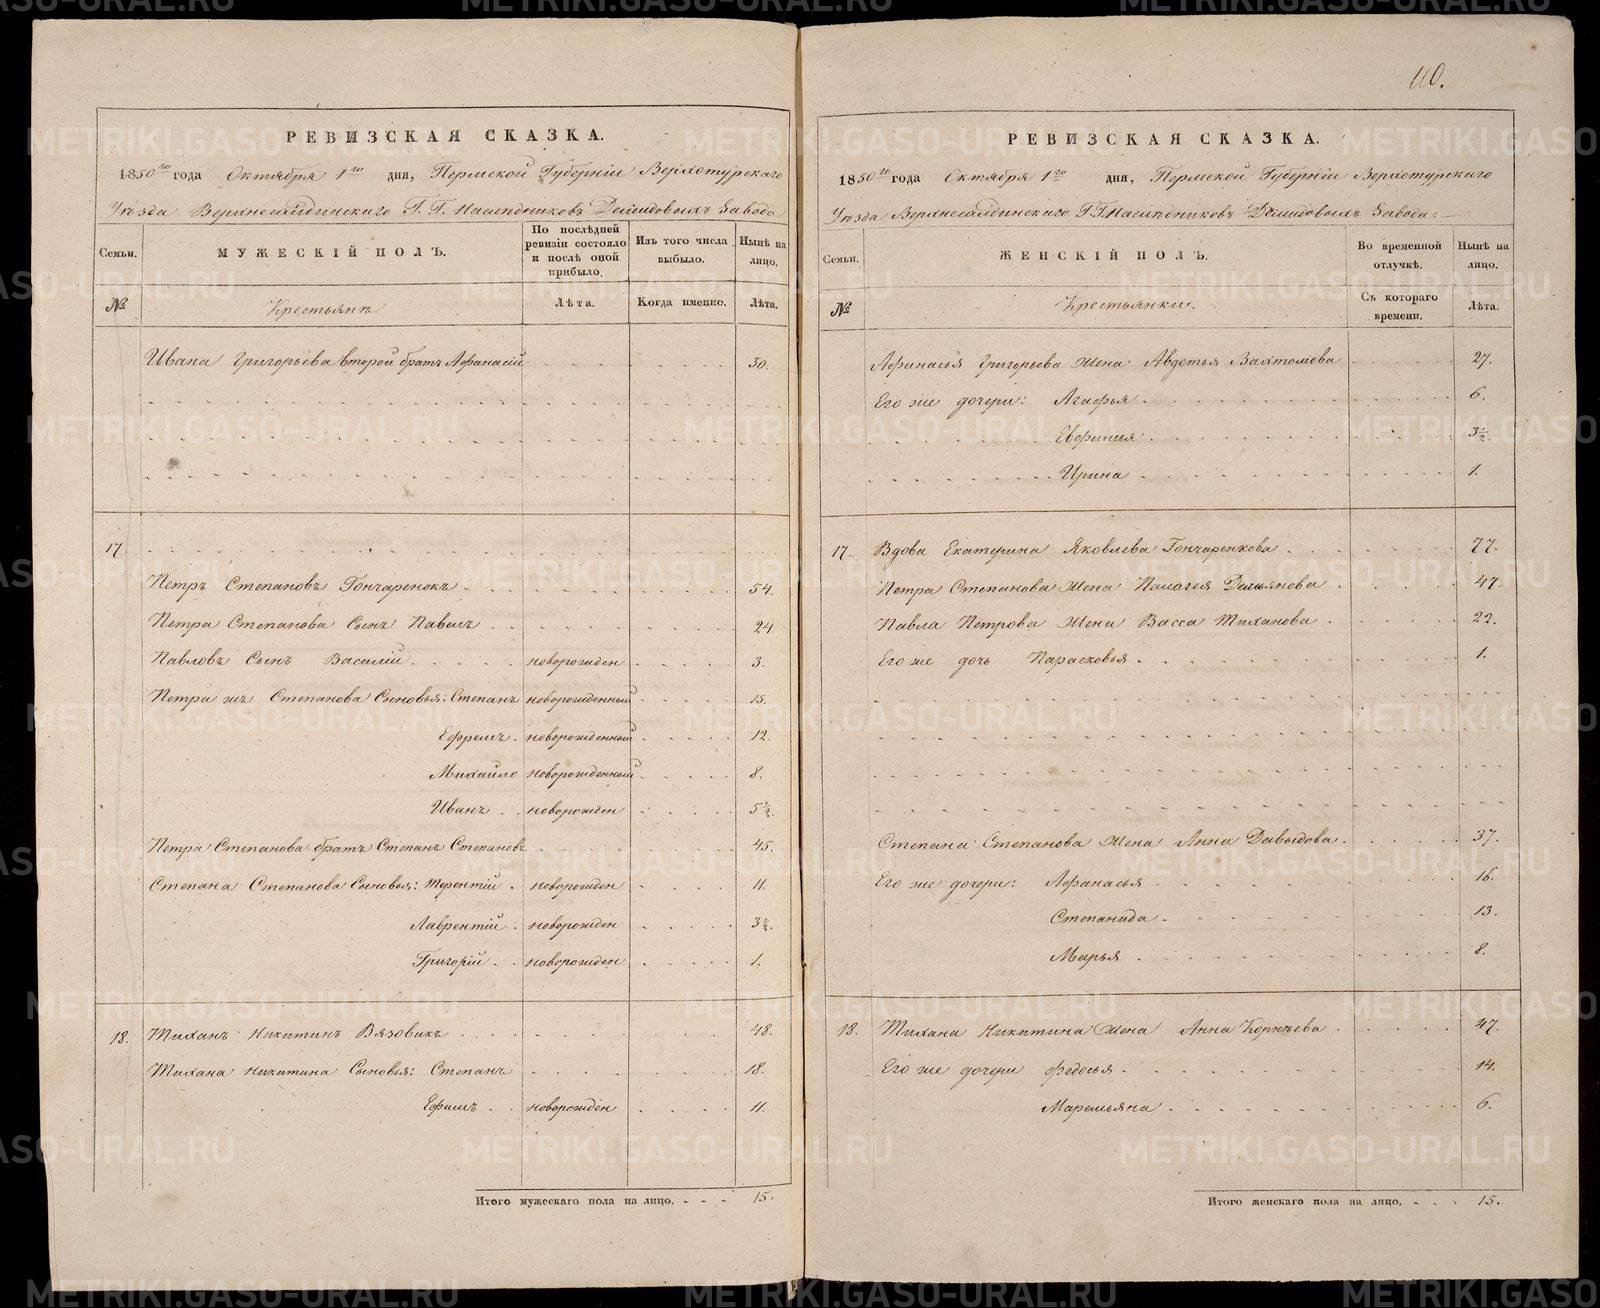 110.
РЕВИЗСКАЯ СКАЗКА.
1850го года Октября 1го дня, Пермской Губерніи Верхотурскаго
Уѣзда Верхнесалдинскаго Г. Г. Наслѣдниковъ Демидовыхъ Завода
Семьи. МУЖЕСКІЙ ПОЛЪ. По послѣдней ревизіи состояло и послѣ оной прибыло. Изъ того числа выбыло. Нынѣ на лицо.
№ Крестьянъ Лѣта. Когда именно. Лѣта.
Ивана Григорьева второй братъ Афанасій 30.
17.
Петръ Степановъ Гончаренокъ 54.
Петра Степанова Сынъ Павелъ 24.
Павловъ Сынъ Василій новорожден 3.
Петра жъ Степанова Сыновья: Степанъ новорожденный 15.
Ефремъ новорожденный 12.
Михайло новорожденный 8.
Иванъ новорожден 5½.
Петра Степанова братъ Степанъ Степановъ 45.
Степана Степанова Сыновья: Терентій новорожден 11.
Лаврентій новорожден 3½.
Григорій новорожден 1.
18. Тиханъ Никитинъ Вязовикъ 48.
Тихана Никитина Сыновья: Степанъ 18.
Ефимъ новорожден 11.
Итого мужескаго пола на лицо. 15.
РЕВИЗСКАЯ СКАЗКА.
1850го года Октября 1го дня, Пермской Губерніи Верхотурскаго
Уѣзда Верхнесалдинскаго Г. Г. Наслѣдниковъ Демидовыхъ Завода:
Семьи. ЖЕНСКІЙ ПОЛЪ. Во временной отлучкѣ. Нынѣ на лицо.
№ Крестьянки. Съ котораго времени. Лѣта.
Афанасья Григорьева Жена Авдотья Вахтомова 27.
Его же дочери: Агафья 6.
Евфимья 3½.
Ирина 1.
17. Вдова Екатерина Яковлева Гончаренкова 77.
Петра Степанова Жена Палагея Демьянова 47.
Павла Петрова Жена Васса Тиханова 22.
Его же дочь Парасковья 1.
Степана Степанова Жена Анна Давыдова 37.
Его же дочери: Афанасья 16.
Степанида 13.
Марья 8.
18. Тихана Никитина Жена Анна Корнѣева 47.
Его же дочери Федосья 14.
Маремьяна 6.
Итого женскаго пола на лицо. 15.
METRIKI.GASO-URAL.RU